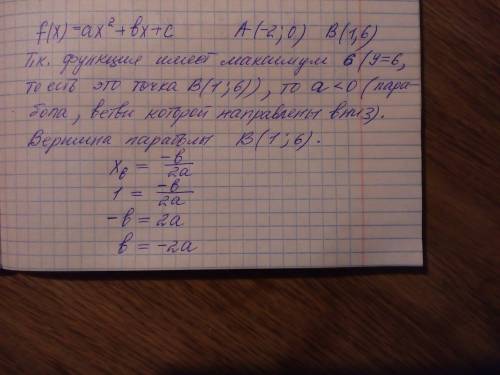 f(x) = ax² + bx + c A(-2; 0) B(1,6)
Т.к. функция имеет максимум 6 (y=6,
то есть это точка B(1; 6)), то a < 0 (пара-
бола, ветви которой направлены вниз).
Вершина параболы B(1; 6).
x₆ = -в/2a
1 = -в/2a
-в = 2a
в = -2a